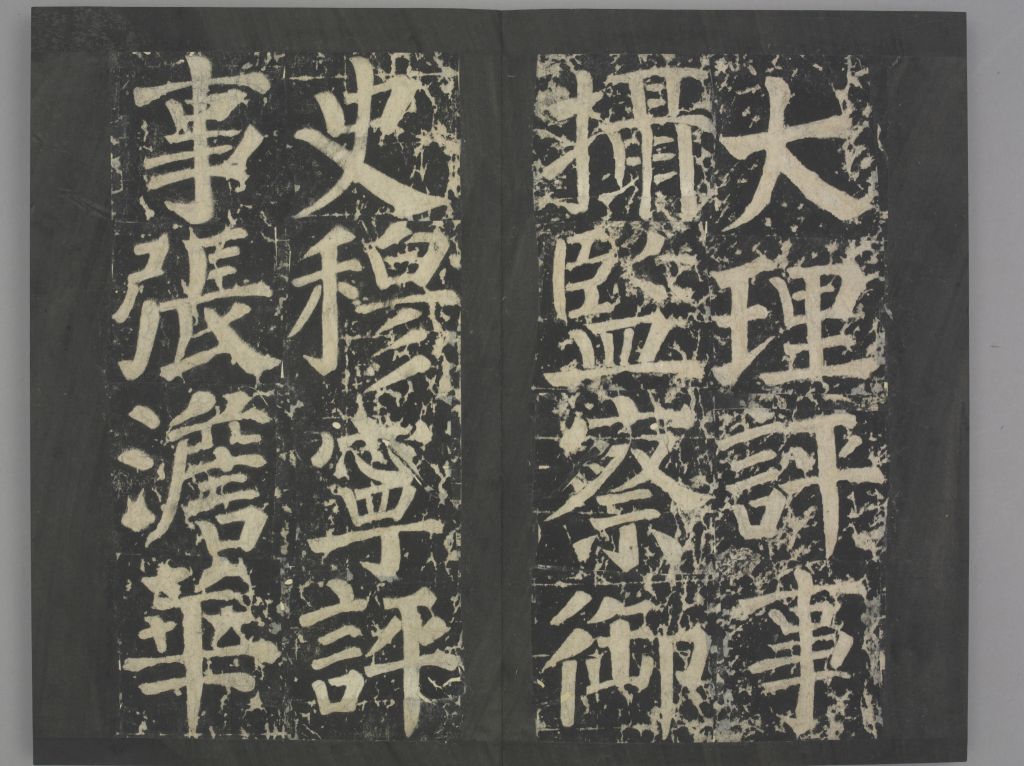 大理評事
攝監察御
史穆尊評
事張澹華